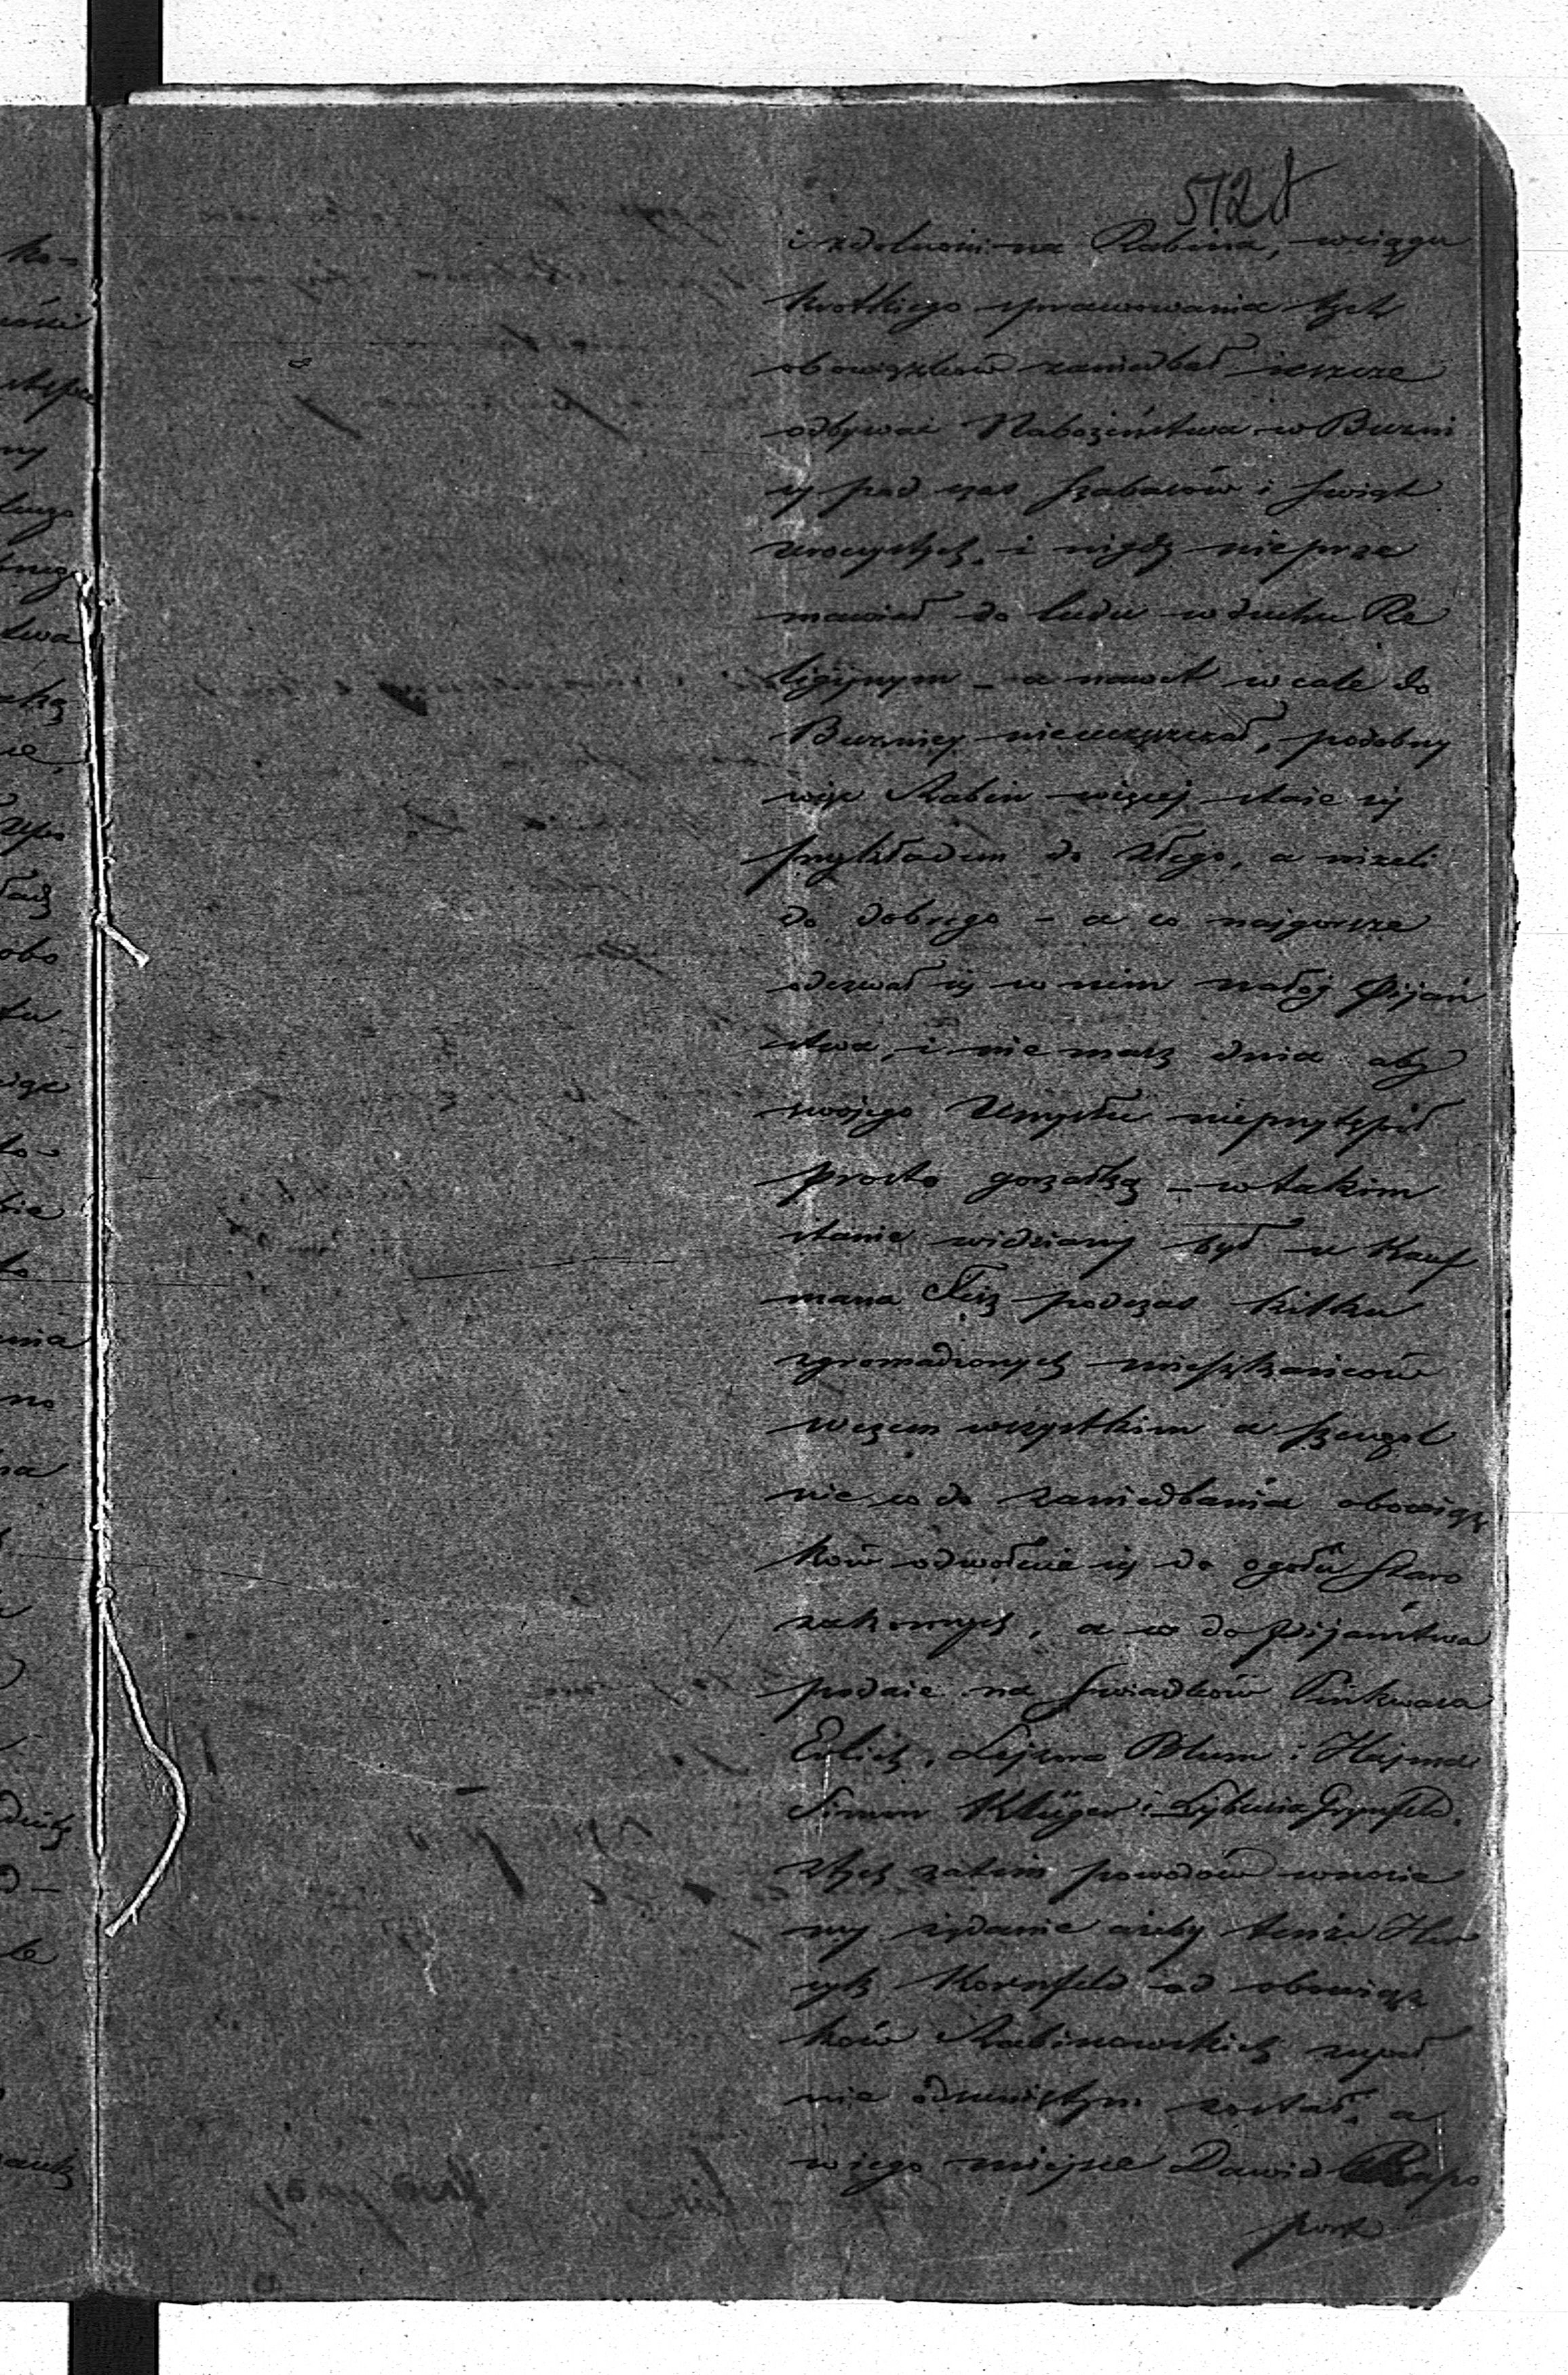 512
i zdolności na Rabina, wciągu
krótkiego sprawowania tych
obowiązków zaniedbał ieszcze
odbywać Nabożeństwa w Buzni
cy pod czas Szabasów i Swiąt
uroczystych, i nigdy nieprze
mawiał do ludu w duchu Re
ligijnym – a nawet wcale do
Buznicy nieuczęszczał, podobny
więc Rabin więcej staie się
przykładem do złego, a niżeli
do dobrego – a co najgorsze
odezwał się w nim nałóg Pijań
stwa, i nie masz dnia aby
swojego Umysłu nieprzytępił
prosto gorzałką – w takim
stanie widziany był u Kauf
mana podczas kilku
zgromadzonych mieszkańców
wczem wszystkim a szczegól
nie co do zaniedbania obowiąz
ków odwołuie się do ogółu Staro
zakonnych, a co do Pijaństwa
podaie na Swiadków Pinkwasa
Erlich, Lejzora Blum i Hajma
Simon Klüger i Grynfeld.
ztych zatém powodów wnosie
my żądanie ażeby tenże Hen
ryk Kornfeld od obowiąz
ków Rabinowskich zupeł
nie odsuniętym został, a
w iego miejsce Dawid Rapo
port